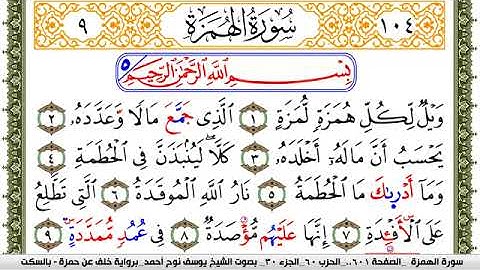 ١٠٤ سُورَةُ الْهُمَزَةِ ٩
بِسْمِ اللَّهِ الرَّحْمَٰنِ الرَّحِيمِ ٥
وَيْلٌ لِّكُلِّ هُمَزَةٍ لُّمَزَةٍ ١ الَّذِي جَمَّعَ مَالًا وَعَدَّدَهُۥ ٢
يَحْسِبُ أَنَّ مَالَهُۥٓ أَخْلَدَهُۥ ٣ كَلَّا ۖ لَيُنۢبَذَنَّ فِي الْحُطَمَةِ ٤
وَمَآ أَدْرَىٰكَ مَا الْحُطَمَةُ ٥ نَارُ اللَّهِ الْمُوقَدَةُ ٦ الَّتِي تَطَّلِعُ
عَلَى الْأَفْـِٔدَةِ ٧ إِنَّهَا عَلَيْهُم مُّؤْصَدَةٌ ٨ فِي عُمُدٍ مُّمَدَّدَةٍۭ ٩
سورة الهمزة _الصفحة ٦٠١.._الحزب ٦٠_الجزء ٣٠_ بصوت الشيخ يوسف نوح أحمد_برواية خلف عن حمزة - بالسكت